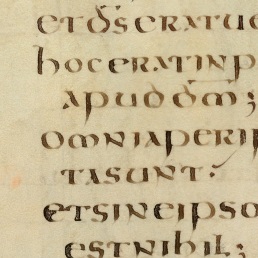 et d̅s̅ eratue
hoc erat in p
apud d̅m̅;
omnia per ip
ta sunt:
et sine ipso
est nihil;